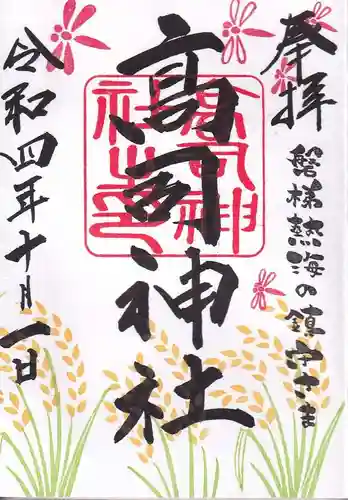 奉拝
磐梯熱海の鎮守さま
高司神社
高司神社之印
令和四年十月一日